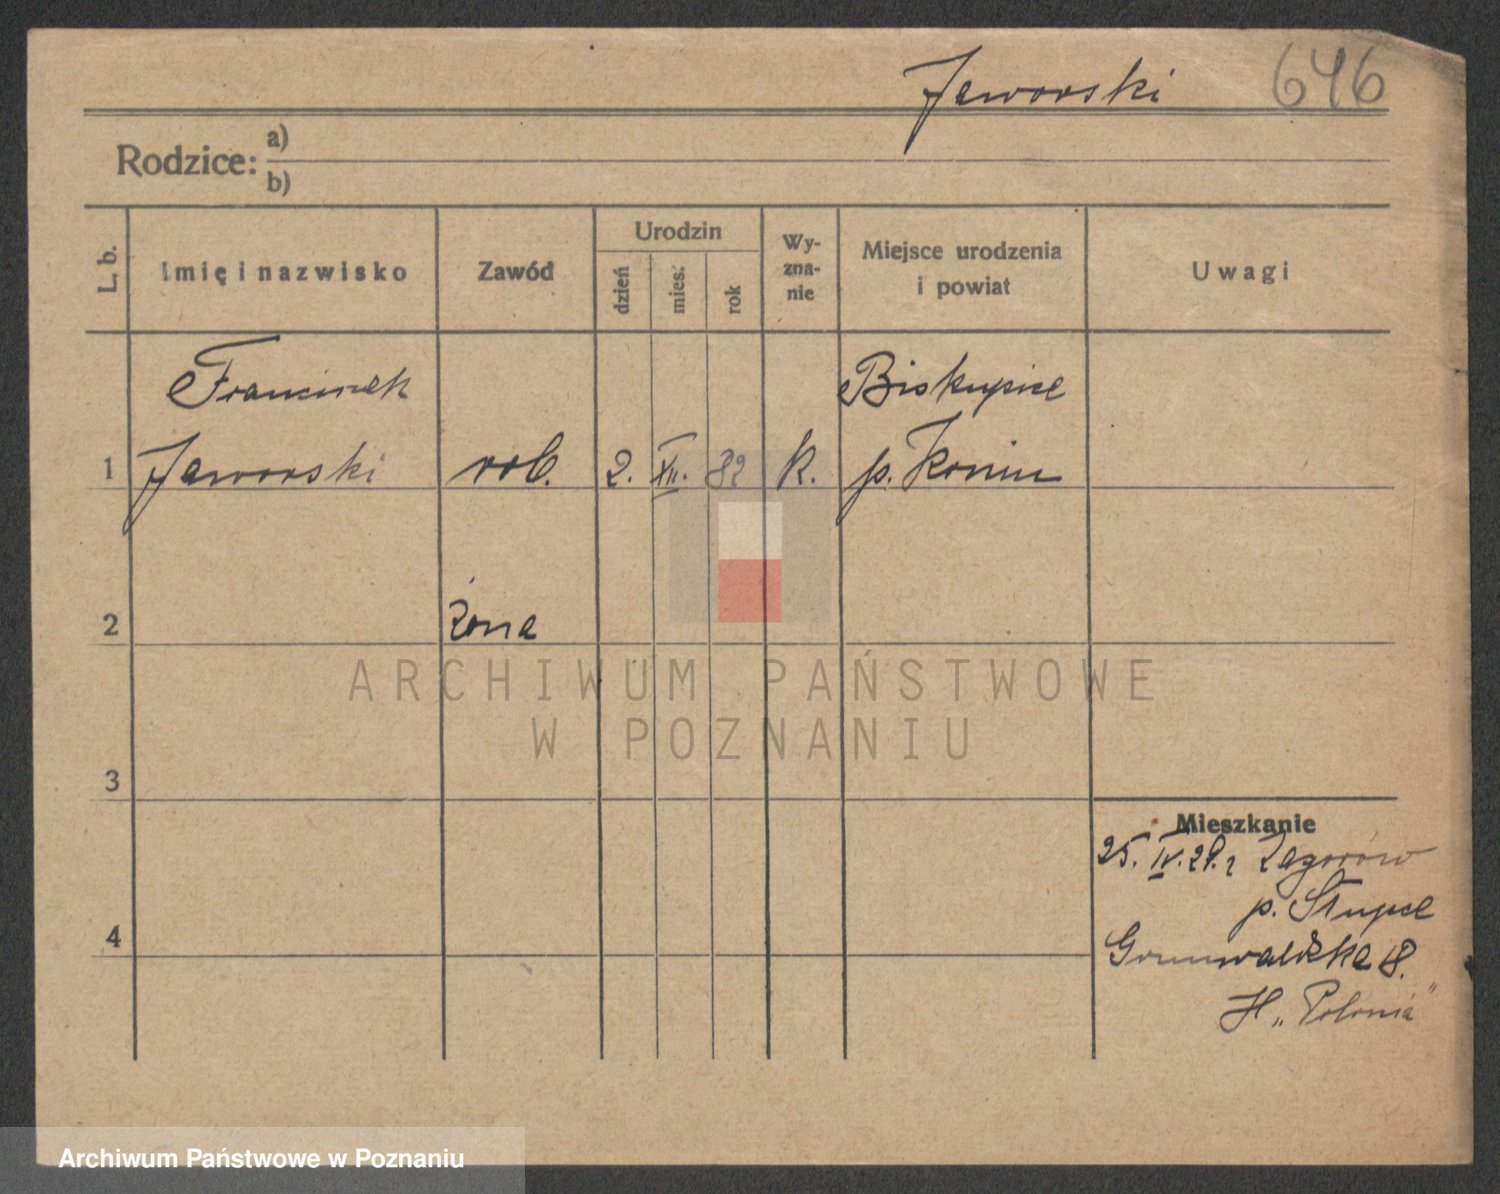 Jaworski 646
Rodzice: a)
b)
L. b.
Imię i nazwisko
Zawód
Urodzin
dzień
mies.
rok
Wy-
zna-
nie
Miejsce urodzenia
i powiat
Uwagi
Franciszek Biskupice
1 Jaworski rob. 2. XII. 82 k. p. Konin
2 żona
ARCHIWUM PAŃSTWOWE
W POZNANIU
3
Mieszkanie
25. IV. 29. z Zagorów
p. Słupce
4 Grunwaldzka 18.
H „Polonia"
Archiwum Państwowe w Poznaniu